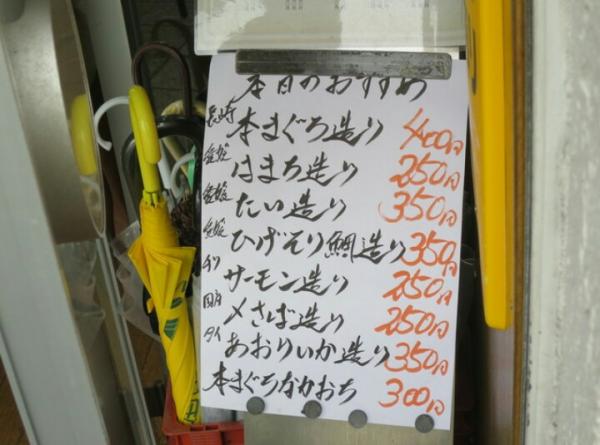 本日のおすすめ
長崎 本まぐろ造り 400円
愛媛 はまち造り 250円
愛媛 たい造り 350円
愛媛 ひげそり鯛造り 350円
チリ サーモン造り 250円
国内 〆さば造り 250円
タイ あおりいか造り 350円
本まぐろなかおち 300円